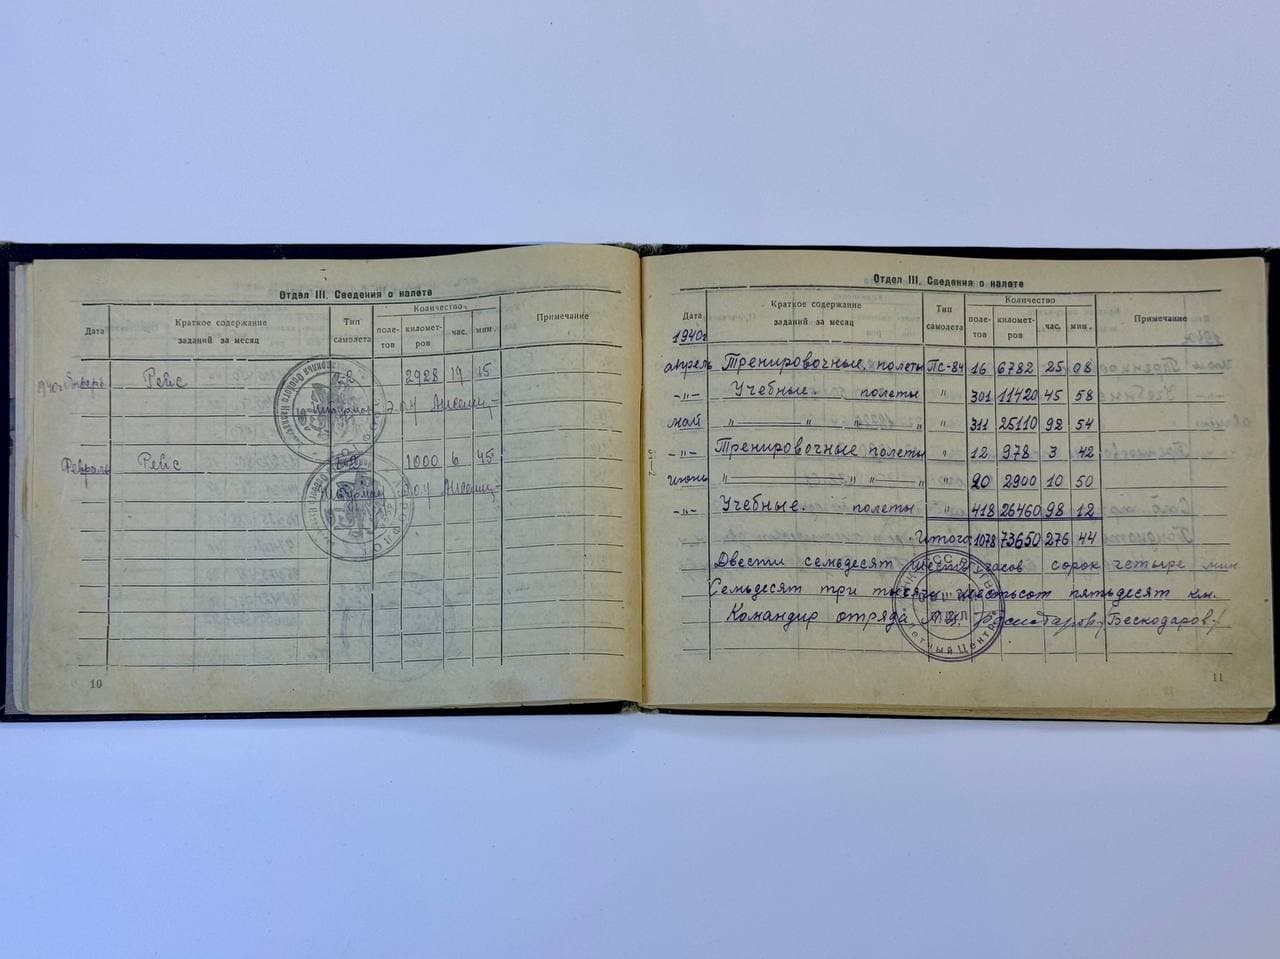 Отдел III. Сведения о налете
Дата
Краткое содержание заданий за месяц
Тип самолета
Количество
поле-тов
километ-ров
час.
мин.
Примечание
Январь Рейс 2928 19 45
Февраль Рейс 1000 6 45
10
Отдел III. Сведения о налете
Дата
1940г
Краткое содержание заданий за месяц
Тип самолета
Количество
поле-тов
километ-ров
час.
мин.
Примечание
апрель Тренировочные полеты Пс-84 16 6782 25 08
-"- Учебные полеты " 301 11420 45 58
май " " " " 311 25110 92 54
-"- Тренировочные полеты " 12 978 3 42
июнь " " " " 20 2900 10 50
-"- Учебные полеты " 418 26460 98 12
Итого 1078 73650 276 44
Двести семьдесят шесть часов сорок четыре мин
Семьдесят три тысячи шестьсот пятьдесят км.
Командир отряда /Бескодаров/
11